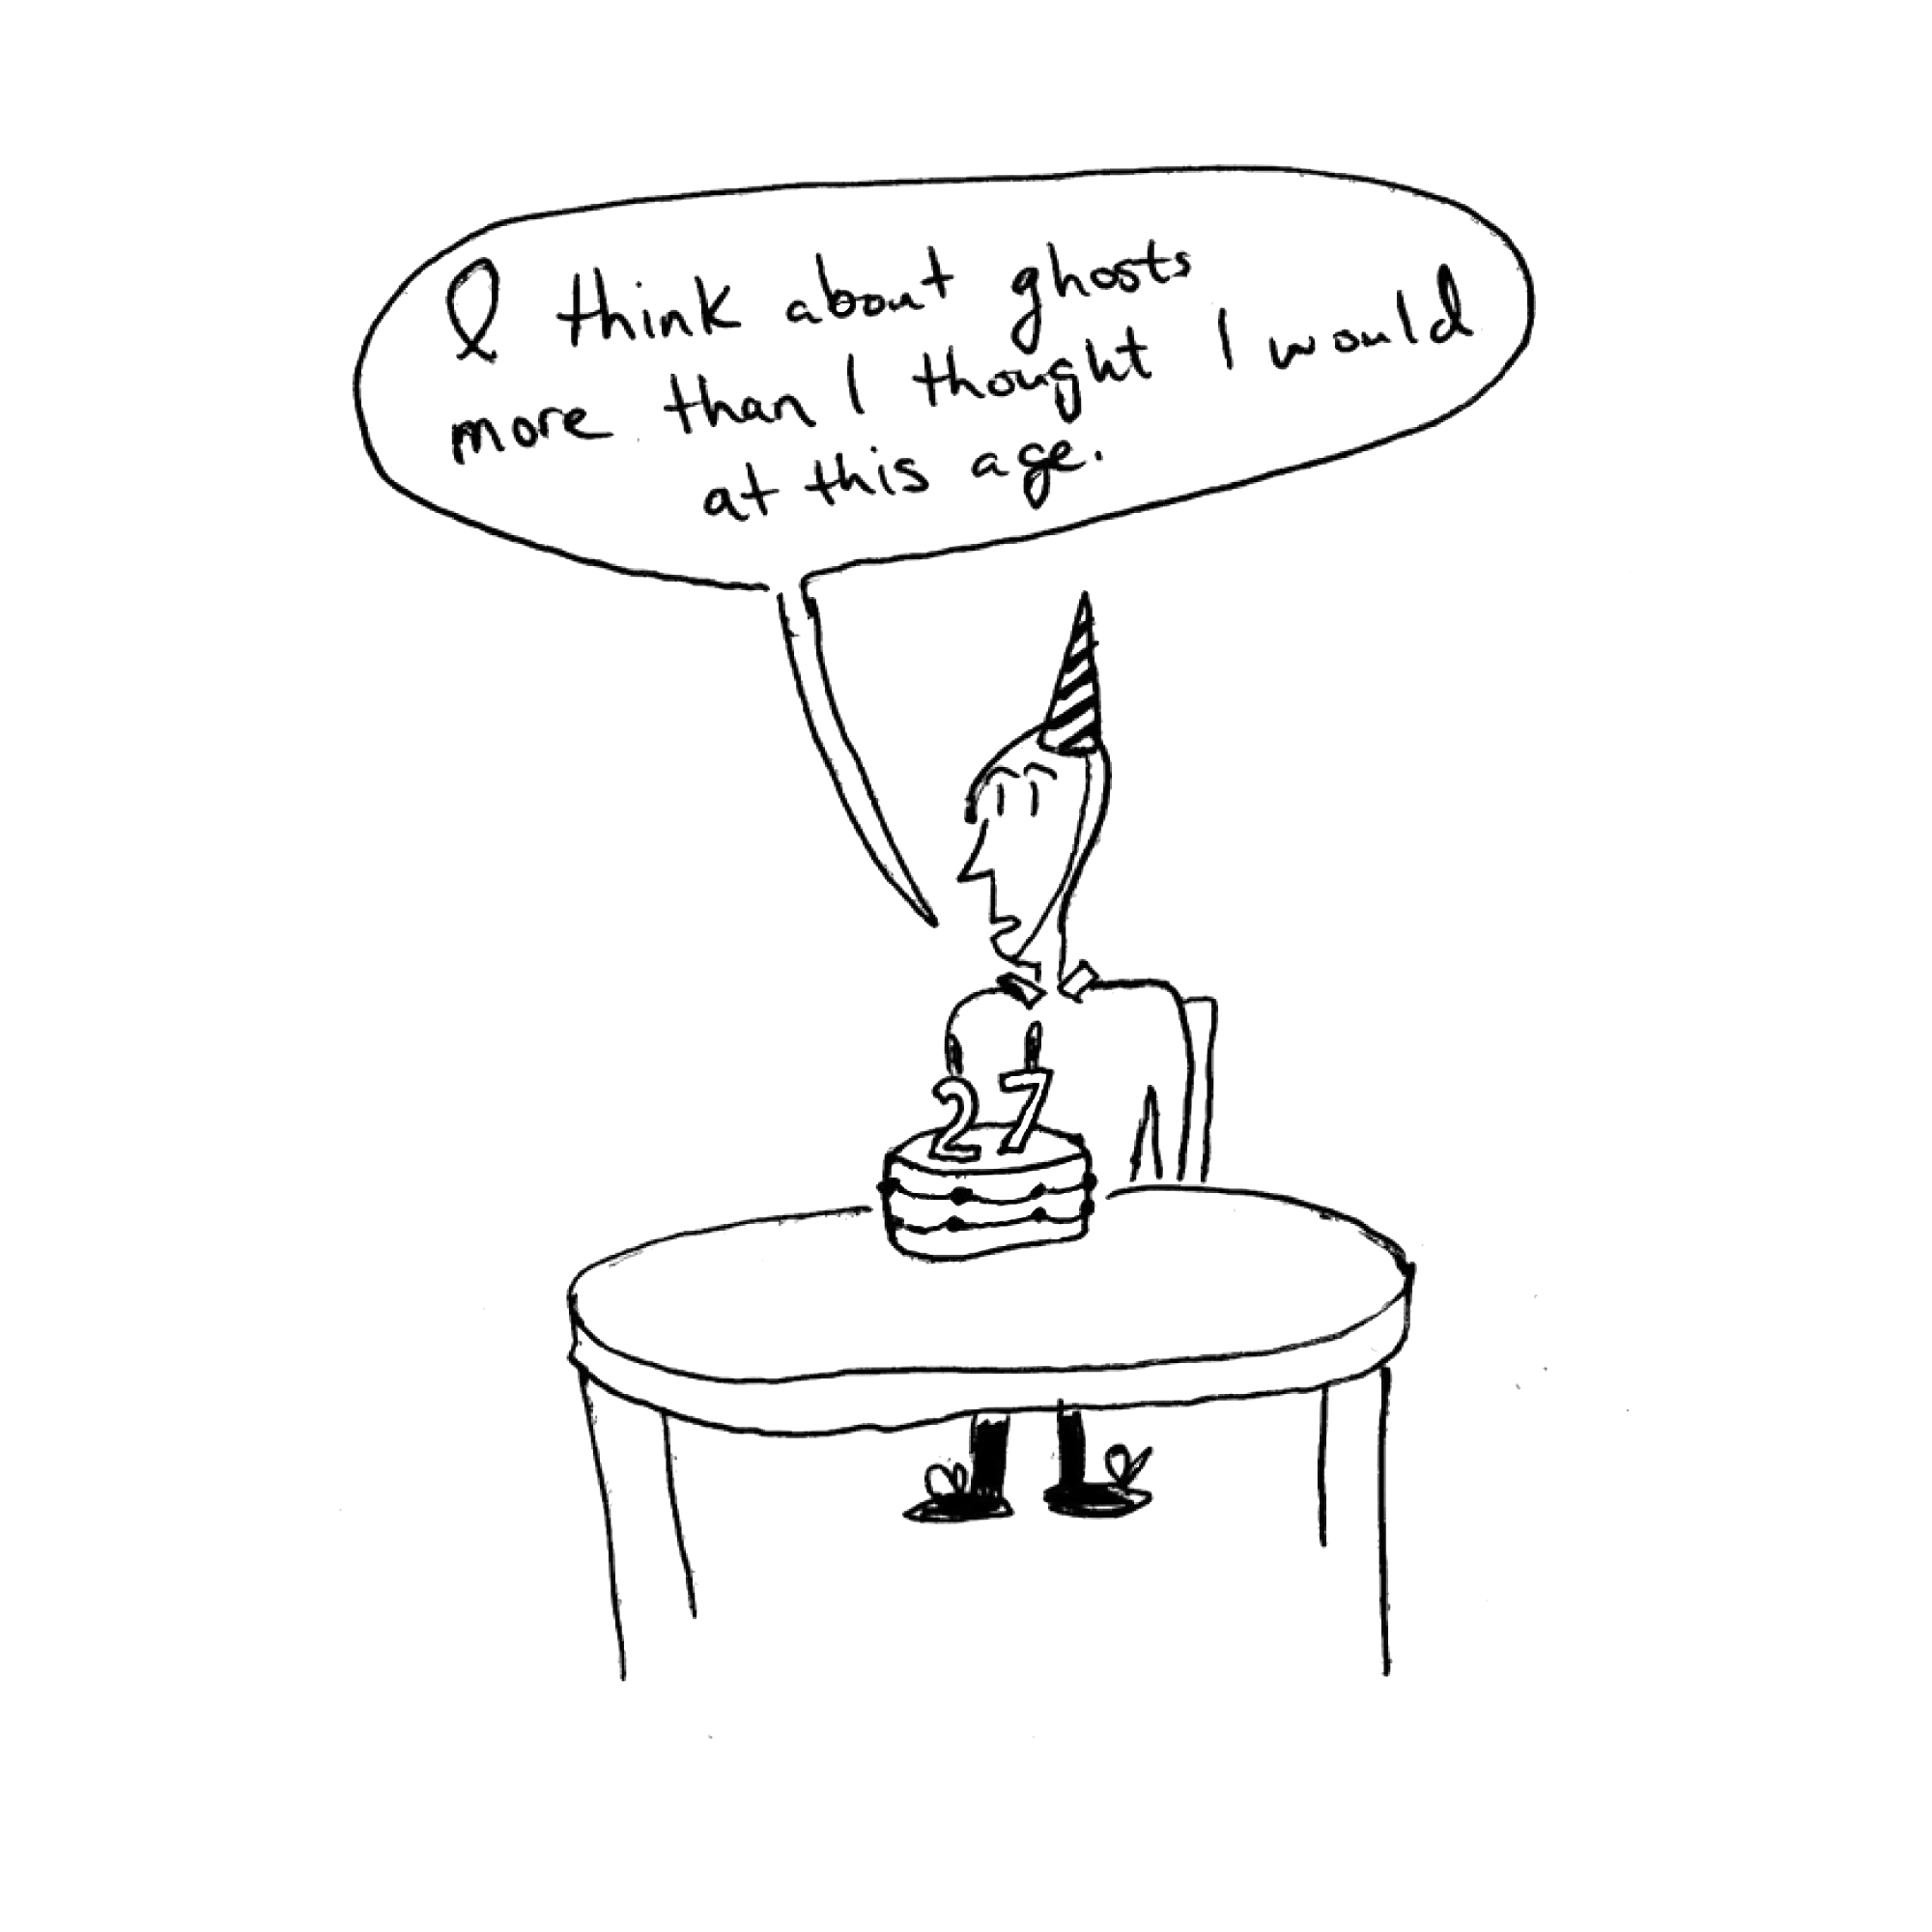 I think about ghosts
more than I thought I would
at this age.
27